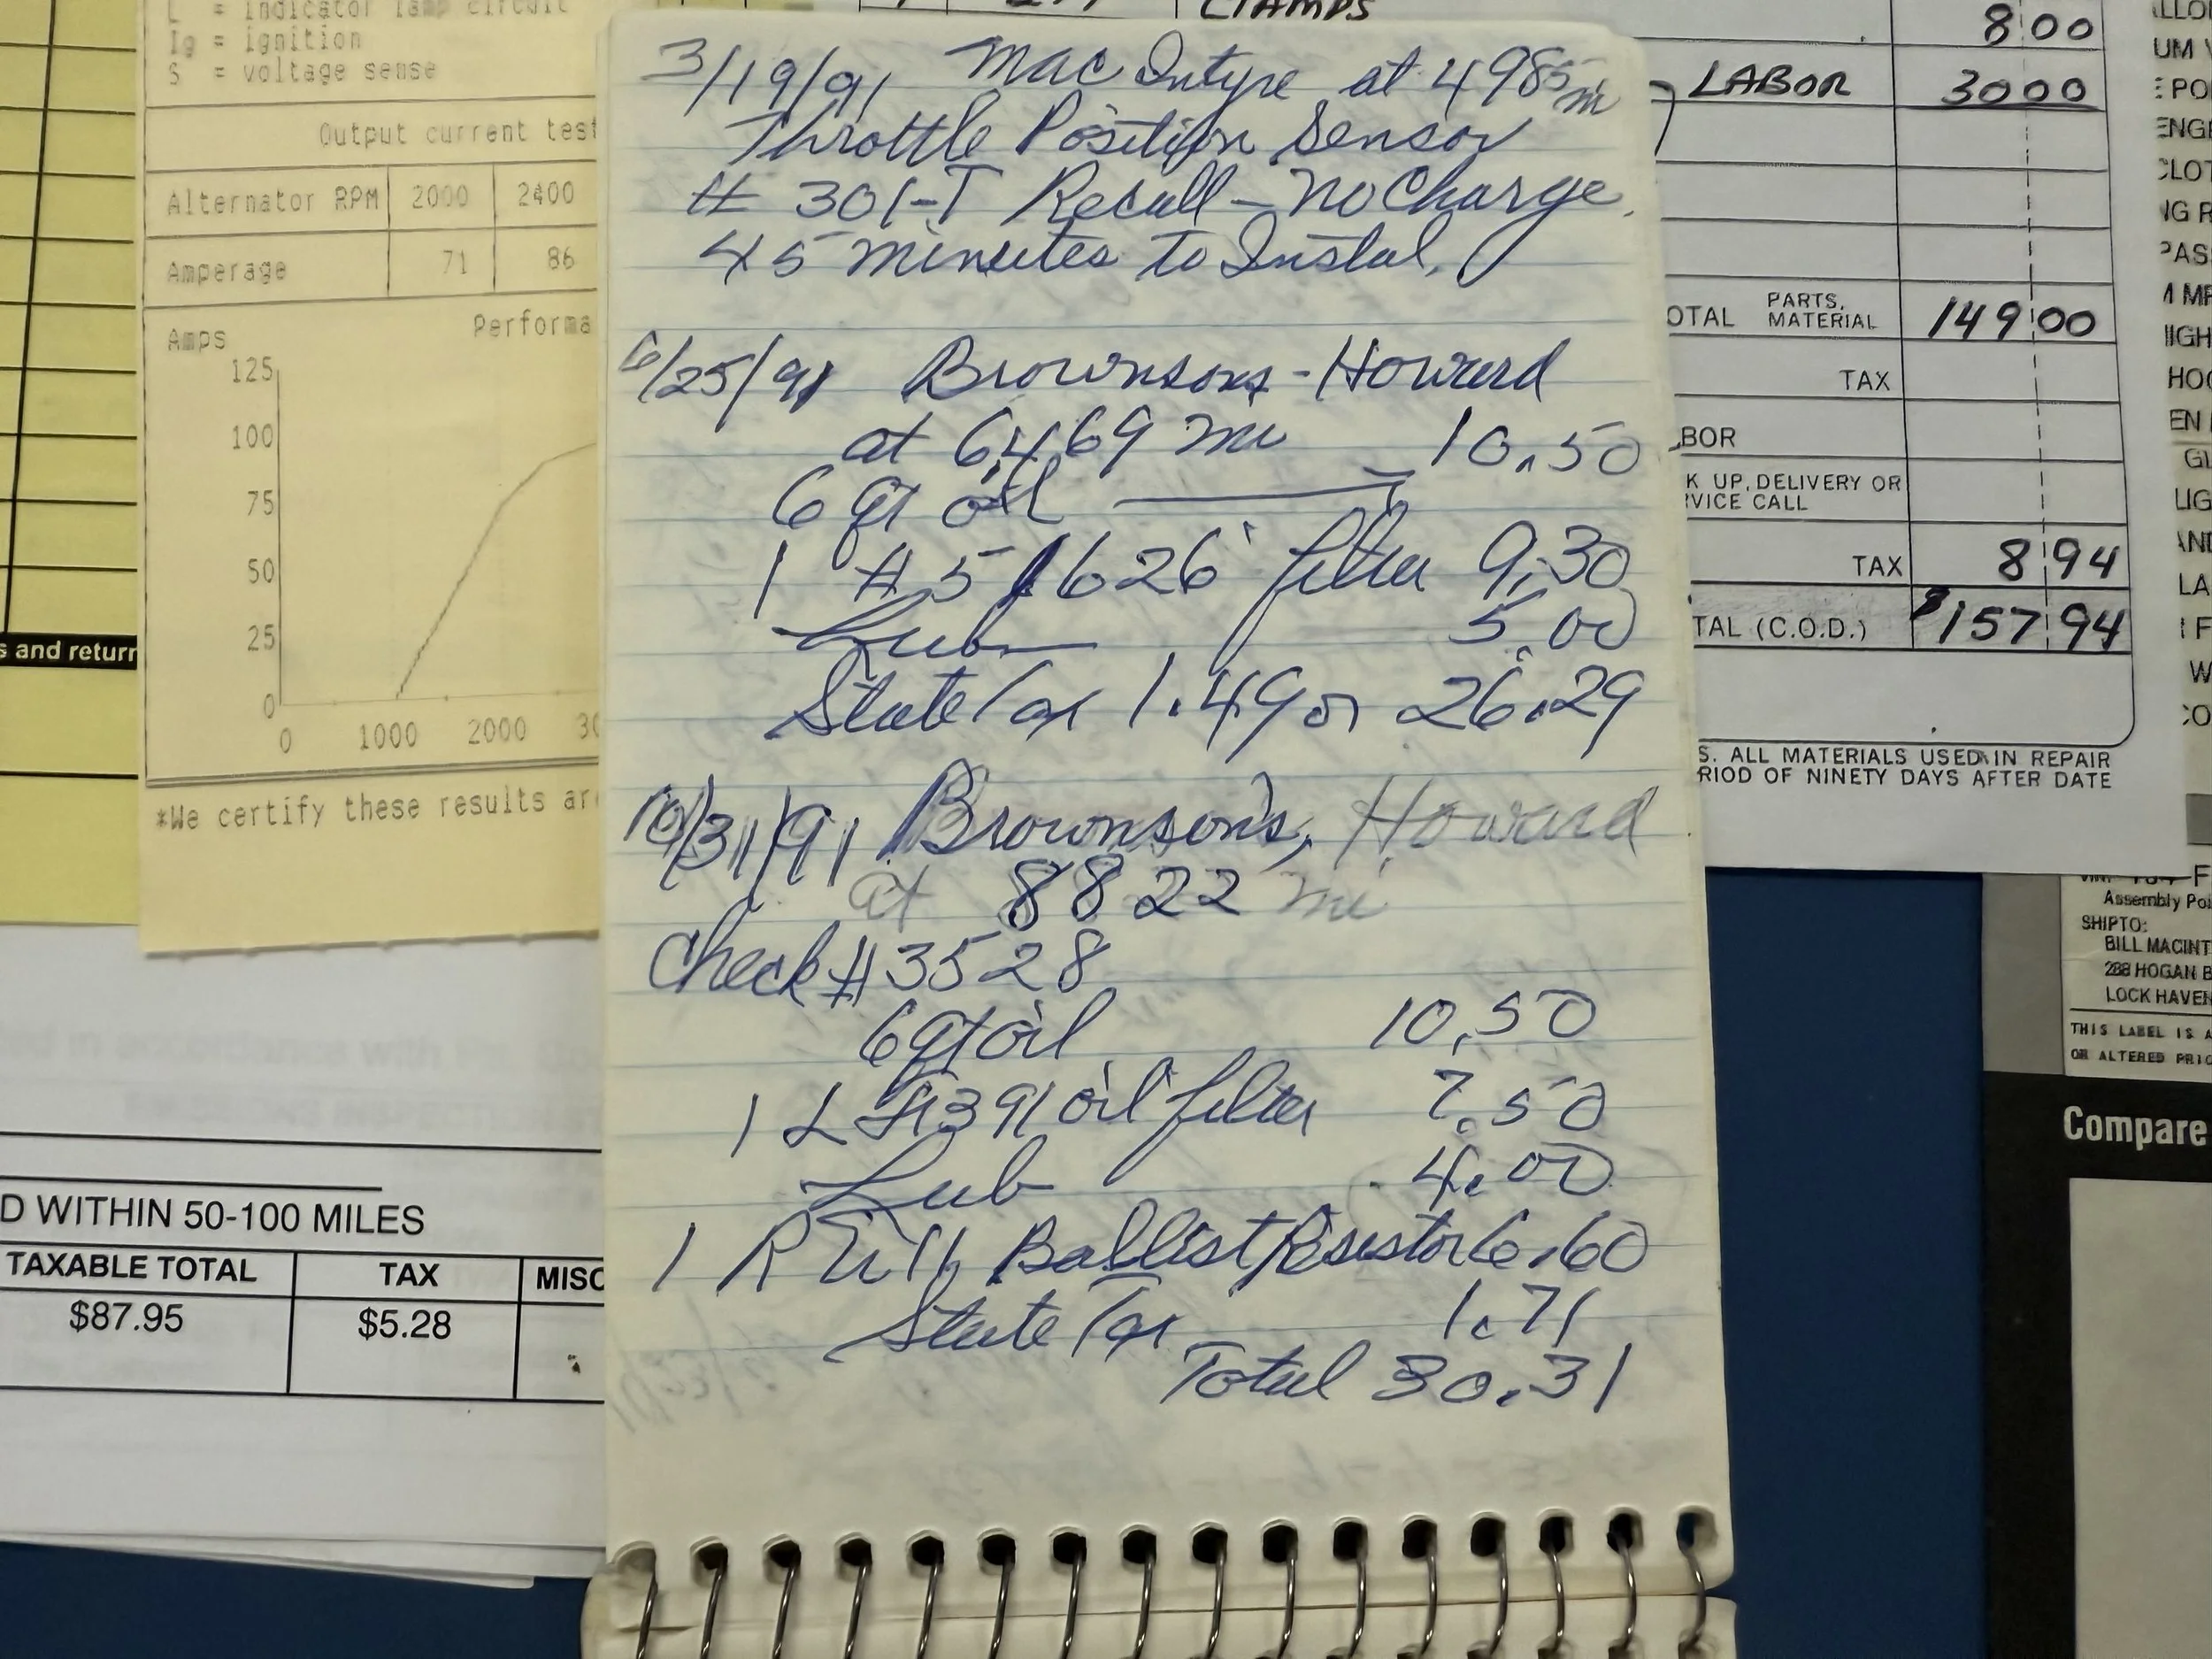 L = indicator lamp circuit
Ig = ignition
S = voltage sense
Output current test
Alternator RPM 2000 2400
Amperage 71 86
Amps Performa
125
100
75
50
25
0
0 1000 2000 30
*We certify these results are
s and return
D WITHIN 50-100 MILES
TAXABLE TOTAL TAX MISC
$87.95 $5.28
3/19/91 Mac Intyre at 4985 mi
Throttle Position Sensor
# 301-T Recall - No Charge.
45 minutes to Instal.
6/25/91 Brownsons - Howard
at 6,469 mi 10.50
6 qt oil
1 # 51626 filter 9.30
Lub 5.00
State Tax 1.49 or 26.29
10/31/91 Brownson's, Howard
at 8822 mi
Check # 3528
6 qt oil 10.50
1 L F1391 oil filter 7.50
Lub 4.00
1 Ballist Resistor 6.60
State Tax 1.71
Total 30.31
CLAMPS
8 00
LABOR 30 00
OTAL PARTS, MATERIAL 149 00
TAX
BOR
K UP, DELIVERY OR
RVICE CALL
TAX 8 94
TAL (C.O.D.) $157 94
S. ALL MATERIALS USED IN REPAIR
RIOD OF NINETY DAYS AFTER DATE
Assembly Poi
SHIP TO:
BILL MACINT
288 HOGAN B
LOCK HAVEN
THIS LABEL IS A
OR ALTERED PRIO
Compare